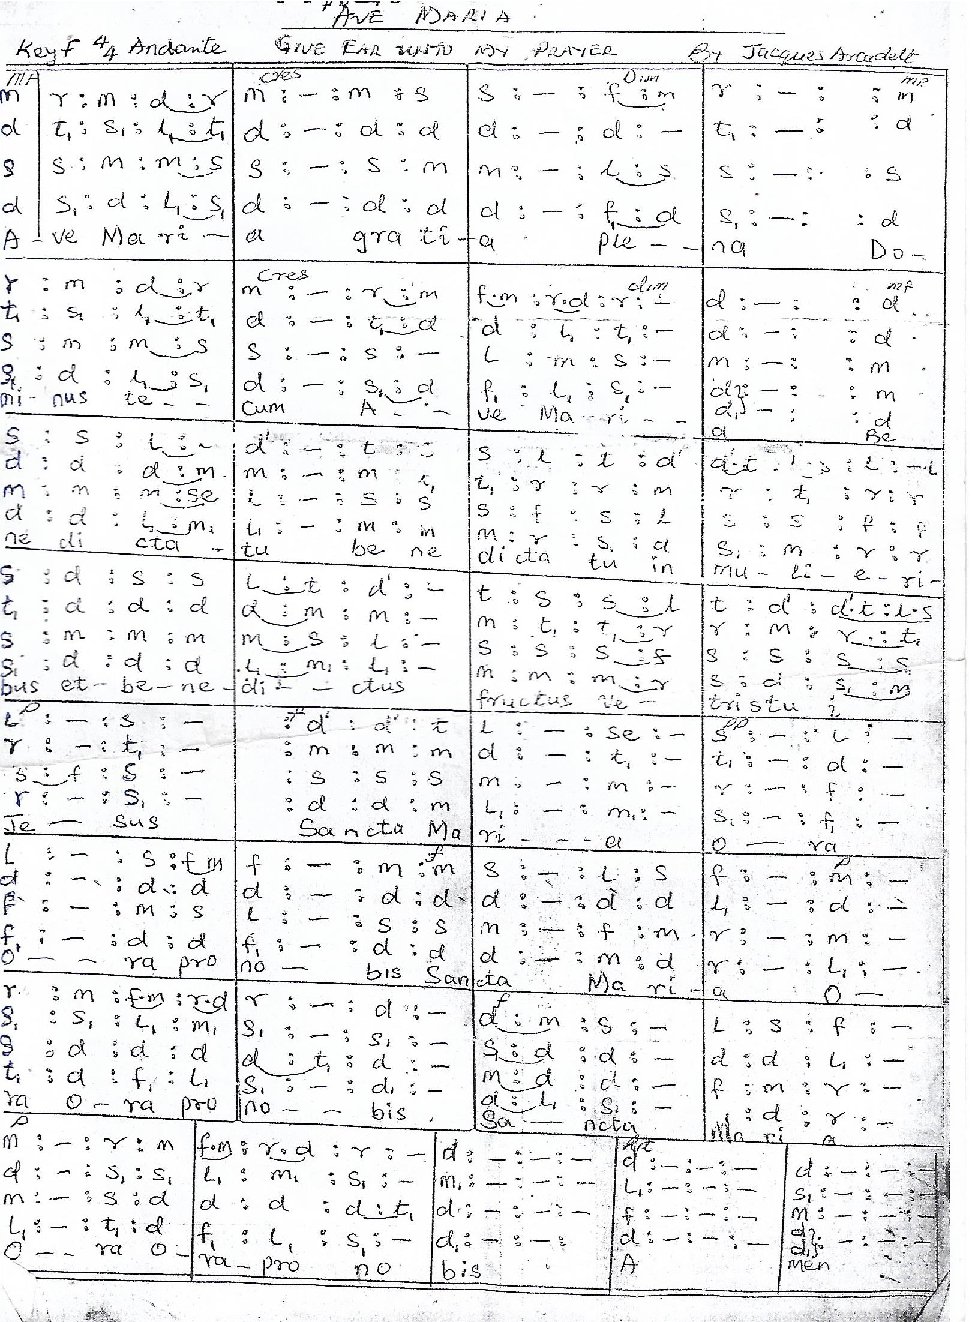 AVE MARIA
Key F 4/4 Andante GIVE EAR UNTO MY PRAYER By Jacques Arcadelt
mp cres Dim mp
m | r : m : d : r | m : – : m : s | s : – : f : m | r : – : : m
d | t₁ : s₁ : l₁ : t₁ | d : – : d : d | d : – : d : – | t₁ : – : : d
s | s : m : m : s | s : – : s : m | m : – : l : s | s : – : : s
d | s₁ : d : l₁ : s₁ | d : – : d : d | d : – : f₁ : d | s₁ : – : : d
A - ve Ma ri – a gra ti – a ple - - na Do -
cres dim mf
r : m : d : r | m : – : r : m | f.m : r.d : r : – | d : – : : d
t₁ : s₁ : l₁ : t₁ | d : – : t₁ : d | d : l₁ : t₁ : – | d : – : : d
s : m : m : s | s : – : s : – | l : m : s : – | m : – : : m
s₁ : d : l₁ : s₁ | d : – : s₁ : d | f₁ : l₁ : s₁ : – | d : – : : m
mi - nus te - - cum A - - ve Ma - ri - d₁ – : : d
a Be
s : s : l : – | d' : – : t : – | s : l : t : d' | d'.t : l.s : l : – l
d : d : d : m | m : – : m : t₁ | t₁ : r : r : m | r : t₁ : r : r
m : m : m : se | l : – : s : s | s : f : s : l | s : s : f : f
d : d : l₁ : m₁ | l₁ : – : m : m | m : r : s₁ : d | s₁ : m : r : r
ne di cta - tu be ne dicta tu in mu - li - e - ri -
s : d : s : s | l : t : d' : – | t : s : s : l | t : d' : d'.t : l.s
t₁ : d : d : d | d : m : m : – | m : t₁ : t₁ : r | r : m : r : t₁
s : m : m : m | m : s : l : – | s : s : s : f | s : s : s : s
s₁ : d : d : d | l₁ : m₁ : l₁ : – | m : m : m : r | s : d : s₁ : m
bus et - be - ne - di - - ctus fructus ve - tristu i
p pp
l : – : s : – | : d' : d' : t | l : – : se : – | s : – : l : –
r : – : t₁ : – | : m : m : m | d : – : t₁ : – | t₁ : – : d : –
s : f : s : – | : s : s : s | m : – : m : – | r : – : f : –
r : – : s₁ : – | : d : d : m | l₁ : – : m₁ : – | s₁ : – : f₁ : –
Je — sus Sancta Ma ri - - - a o — ra
f p
l : – : s : f m | f : – : m : m | s : – : l : s | f : – : m : –
d : – : d : d | d : – : d : d | d : – : d : d | l₁ : – : d : –
f : – : m : s | l : – : s : s | m : – : f : m | r : – : m : –
f₁ : – : d : d | f₁ : – : d : d | d : – : m : d | r : – : l₁ : –
O - - - ra pro no — bis Sancta Ma ri - a O —
f
r : m : f.m : r.d | r : – : d : – | d : m : s : – | l : s : f : –
s₁ : s₁ : l₁ : m₁ | s₁ : – : s₁ : – | s : d : d : – | d : d : l₁ : –
s : d : d : d | d : t₁ : d : – | m : d : d : – | f : m : r : –
t₁ : d : f₁ : l₁ | s₁ : – : d₁ : – | d : l₁ : s₁ : – | : d : r : –
ra O - ra pro no - - bis Sa — ncta Ma ri a
p
m : – : r : m | f.m : r.d : r : – | d : – : – : – | d : – : – : – | d : – : – : –
d : – : s₁ : s₁ | l₁ : m₁ : s₁ : – | m₁ : – : – : – | l₁ : – : – : – | s₁ : – : – : –
m : – : s : d | d : d : d : t₁ | d : – : – : – | f : – : – : – | m : – : – : –
l₁ : – : t₁ : d | f₁ : l₁ : s₁ : – | d₁ : – : – : | d : – : – : – | d : – : – : –
O - - ra O - ra - pro no bis A men